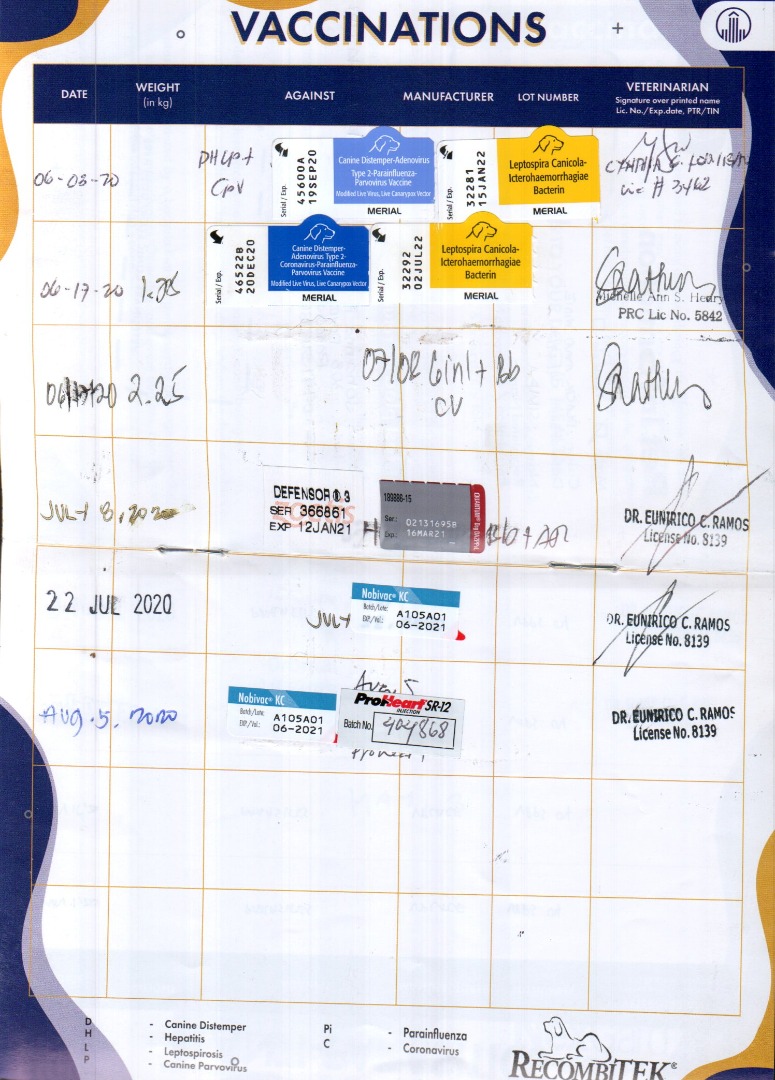 VACCINATIONS
DATE WEIGHT (in kg) AGAINST MANUFACTURER LOT NUMBER VETERINARIAN
Signature over printed name
Lic. No./Exp.date, PTR/TIN
06-03-20
CPV
Serial / Exp.
45600A
19SEP20
Canine Distemper-Adenovirus
Type 2-Parainfluenza-
Parvovirus Vaccine
Modified Live Virus, Live Canarypox Vector
MERIAL
Serial / Exp.
32281
15JAN22
Leptospira Canicola-
Icterohaemorrhagiae
Bacterin
MERIAL
Lic # 3462
06-17-20 1.25
Serial / Exp.
46522B
20DEC20
Canine Distemper-
Adenovirus Type 2-
Coronavirus-Parainfluenza-
Parvovirus Vaccine
Modified Live Virus, Live Canarypox Vector
MERIAL
Serial / Exp.
32292
02JUL22
Leptospira Canicola-
Icterohaemorrhagiae
Bacterin
MERIAL
Michelle Ann S. Henry
PRC Lic No. 5842
2.25
6in1 + Bb
CV
JULY 8, 2020
DEFENSOR 3
SER 366861
EXP 12JAN21
189886-15
Ser: 02131695B
Exp.: 16MAR21
DR. EUNIRICO C. RAMOS
License No. 8139
22 JUL 2020
JULY
Nobivac® KC
Batch/Lote: A105A01
EXP/Val.: 06-2021
DR. EUNIRICO C. RAMOS
License No. 8139
AUG. 5. 2020
Nobivac® KC
Batch/Lote: A105A01
EXP/Val.: 06-2021
Aug. 5
ProHeart SR-12
INJECTION
Batch No. 404868
DR. EUNIRICO C. RAMOS
License No. 8139
D - Canine Distemper
H - Hepatitis
L - Leptospirosis
P - Canine Parvovirus
Pi - Parainfluenza
C - Coronavirus
RECOMBITEK®